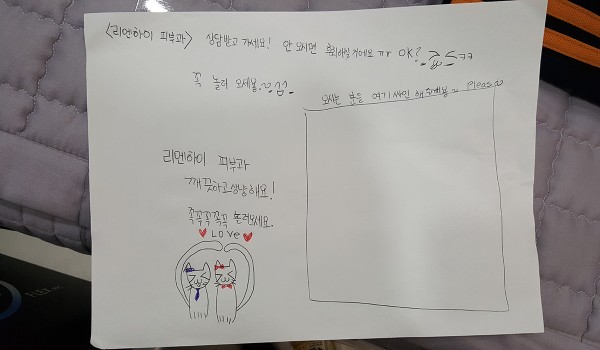 <리엔하이 피부과> 상담받고 가세요! 안 오시면 후회할거에요 ㅠㅠ OK?
꼭 놀러 오세용
오시는 분들 여기 싸인 해주세용~ Pleas
리엔하이 피부과
깨끗하고 상냥해요!
꼭꼭꼭꼭꼭 놀러오세요.
LOVE